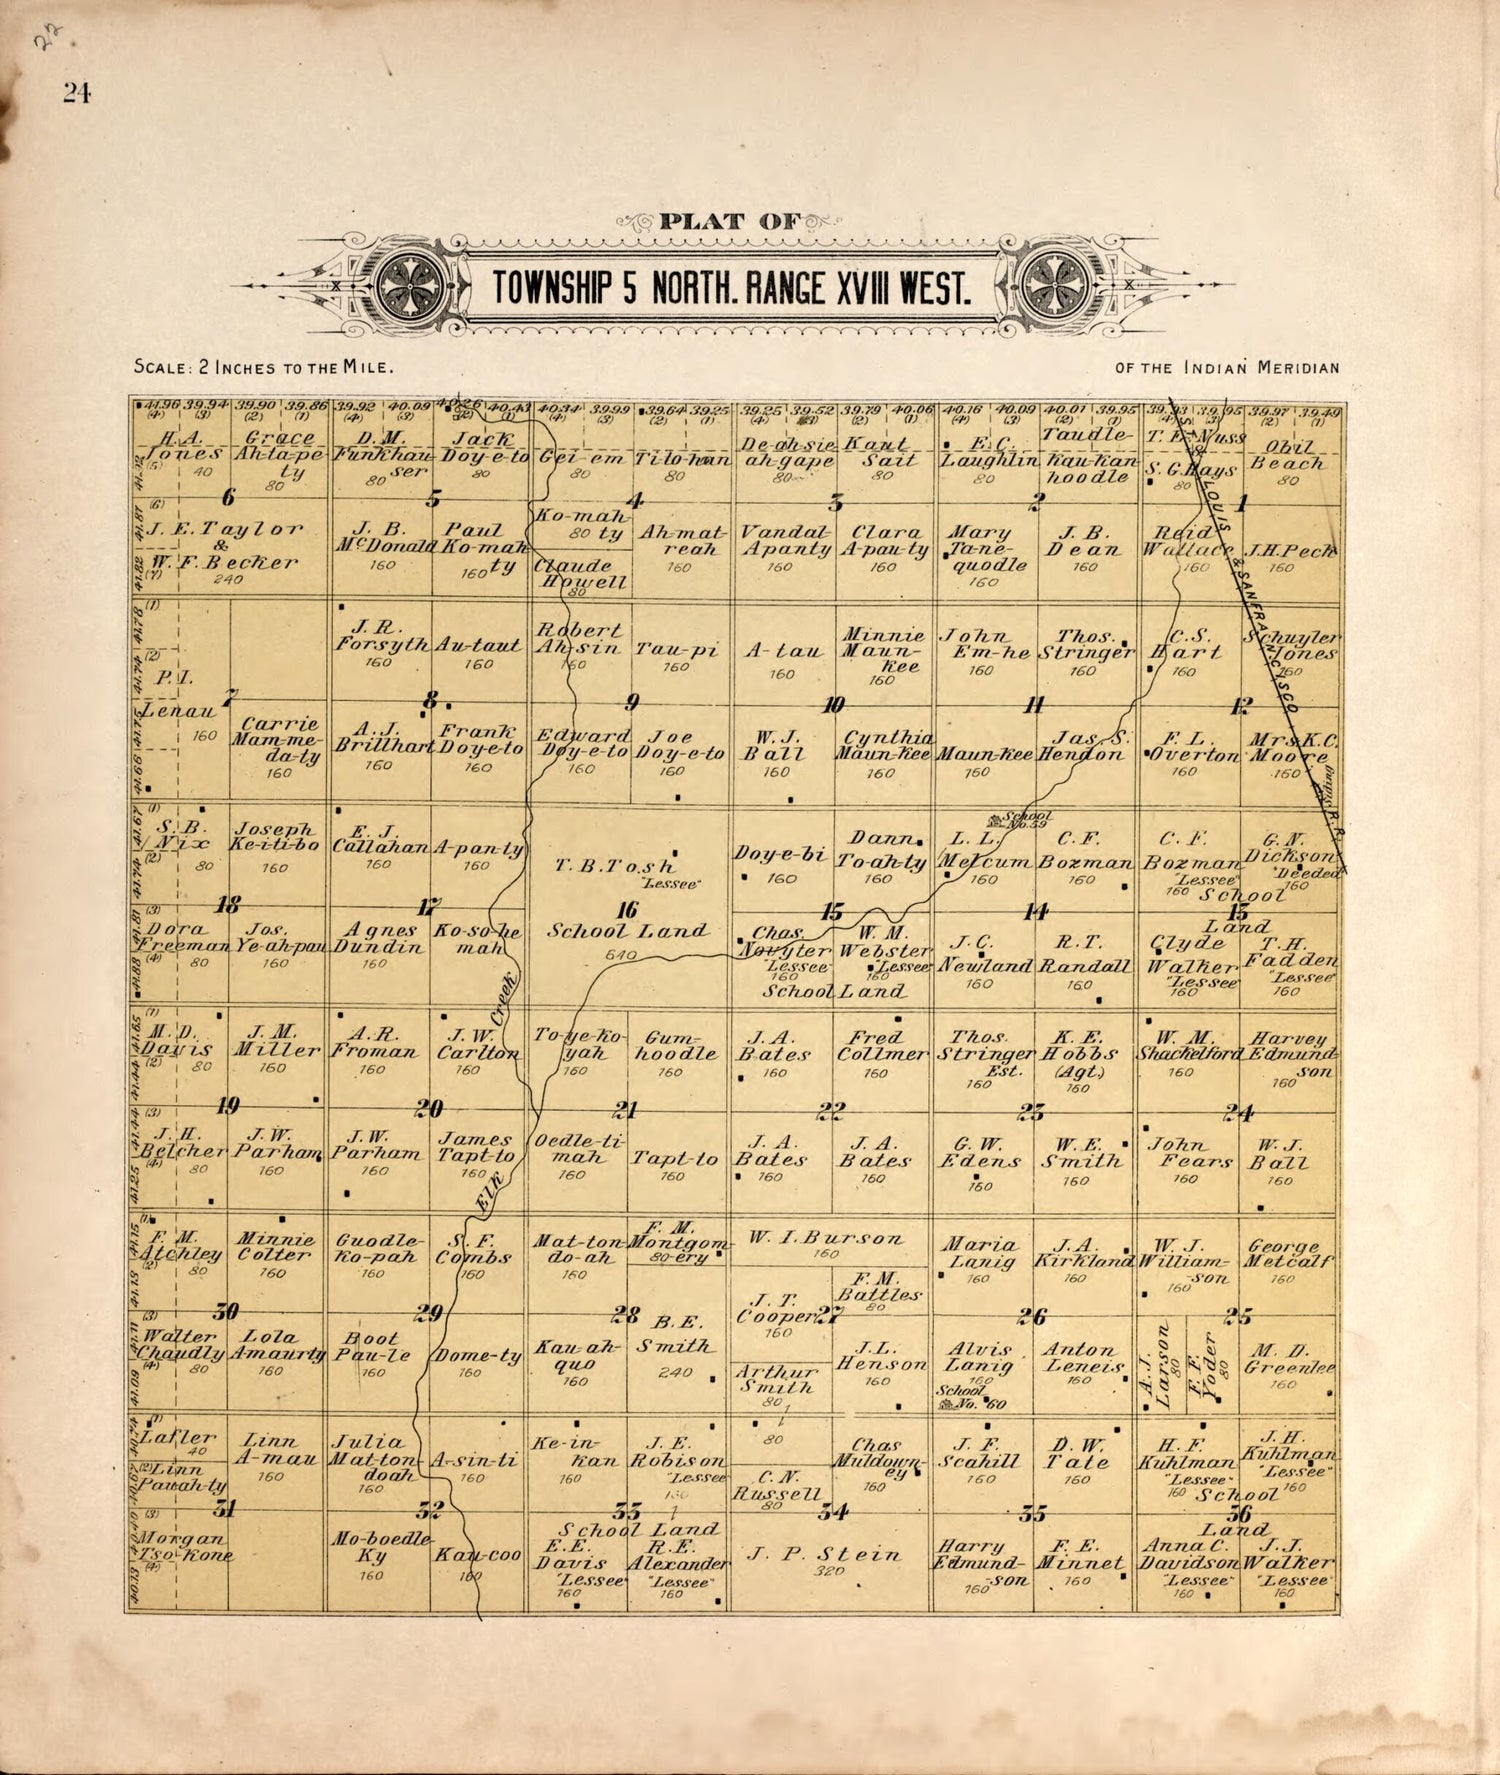 22
24
PLAT OF
TOWNSHIP 5 NORTH. RANGE XVIII WEST.
SCALE: 2 INCHES TO THE MILE.
OF THE INDIAN MERIDIAN
41.96 39.94 39.90 39.86 39.92 40.09 40.26 40.43 40.34 39.99 39.64 39.25 39.25 39.52 39.79 40.06 40.16 40.09 40.01 39.95 39.93 39.95 39.97 39.49
(4) (3) (2) (1) (4) (3) (2) (1) (4) (3) (2) (1) (4) (3) (2) (1) (4) (3) (2) (1) (4) (3) (2) (1)
H. A. Jones 40
Grace Ah-ta-pe-ty 80
D. M. Funkhauser 80
Jack Doy-e-to 80
Gei-em 80
Ti-lo-han 80
De-ah-sie ah-gape 80
Kaut Sait 80
E. C. Laughlin 80
Taudle-kau-kan hoodle
T. E. Nuss
S. G. Hays 80
Obil Beach 80
6 5 4 3 2 1
J. E. Taylor & W. F. Becker 240
J. B. McDonald 160
Paul Ko-mah-ty 160
Ko-mah-ty 80
Claude Howell 80
Ah-mat-reah 160
Vandal Apanty 160
Clara A-pau-ty 160
Mary Ta-ne-quodle 160
J. B. Dean 160
Reid Wallace 160
J. H. Peck 160
ST. LOUIS & SAN FRANCISCO
P. I. Lenau 160
J. R. Forsyth 160
Au-taut 160
Robert Ah-sin 160
Tau-pi 160
A-tau 160
Minnie Maun-kee 160
John Em-he 160
Thos. Stringer 160
C. S. Hart 160
Schuyler Jones 160
7 8 9 10 11 12
Carrie Mam-me-da-ty 160
A. J. Brillhart 160
Frank Doy-e-to 160
Edward Doy-e-to 160
Joe Doy-e-to 160
W. J. Ball 160
Cynthia Maun-kee 160
Maun-kee 160
Jas. S. Hendon
F. L. Overton 160
Mrs. K. C. Moore 160
S. B. Nix 80
Joseph Ke-i-ti-bo 160
E. J. Callahan 160
A-pan-ty 160
T. B. Tosh "Lessee"
Doy-e-bi 160
Dann. To-ah-ty 160
School No. 59
L. L. Mercum 160
C. F. Bozman 160
C. F. Bozman "Lessee" 160
G. N. Dickson "Deeded" 160
School Land
18 17 16 15 14 13
Dora Freeman 80
Jos. Ye-ah-pau 160
Agnes Dundin 160
Ko-so-he mah
School Land 640
Chas. Novyter "Lessee" 160
W. M. Webster "Lessee" 160
School Land
J. C. Newland 160
R. T. Randall 160
Clyde Walker "Lessee" 160
T. H. Fadden "Lessee" 160
Elk Creek
M. D. Davis 80
J. M. Miller 160
A. R. Froman 160
J. W. Carlton 160
To-ye-ko-yah 160
Gum-hoodle 160
J. A. Bates 160
Fred Collmer 160
Thos. Stringer Est. 160
K. E. Hobbs (Agt.) 160
W. M. Shackelford 160
Harvey Edmundson 160
19 20 21 22 23 24
J. H. Belcher 80
J. W. Parham 160
J. W. Parham 160
James Tapt-to 160
Oedle-ti-mah 160
Tapt-to 160
J. A. Bates 160
J. A. Bates 160
G. W. Edens 160
W. E. Smith 160
John Fears 160
W. J. Ball 160
F. M. Atchley 80
Minnie Colter 160
Guodle-ko-pah 160
S. F. Combs 160
Mat-ton-do-ah 160
F. M. Montgomery 80
W. I. Burson 160
J. T. Cooper 160
F. M. Battles 80
Maria Lanig 160
J. A. Kirkland 160
W. J. Williamson 160
George Metcalf 160
30 29 28 27 26 25
Walter Chaudly 80
Lola Amaurty 160
Boot Pau-le 160
Dome-ty 160
Kau-ah-quo 160
B. E. Smith 240
Arthur Smith 80
J. L. Henson 160
Alvis Lanig 160
School No. 60
Anton Leneis 160
A. J. Larson 80
F. F. Yoder 80
M. D. Greenlee 160
Lafler 40
Linn Pauah-ty
Linn A-mau 160
Julia Mat-ton-doah 160
A-sin-ti 160
Ke-in-kan 160
J. E. Robison "Lessee" 160
80
C. N. Russell 80
Chas Muldowney 160
J. F. Scahill 160
D. W. Tate 160
H. F. Kuhlman "Lessee" 160
J. H. Kuhlman "Lessee" 160
School Land
31 32 33 34 35 36
Morgan Tso-kone
Mo-boedle-Ky 160
Kau-coo 160
School Land
E. E. Davis "Lessee" 160
R. E. Alexander "Lessee" 160
J. P. Stein 320
Harry Edmundson 160
F. E. Minnet 160
Anna C. Davidson "Lessee" 160
J. J. Walker "Lessee" 160